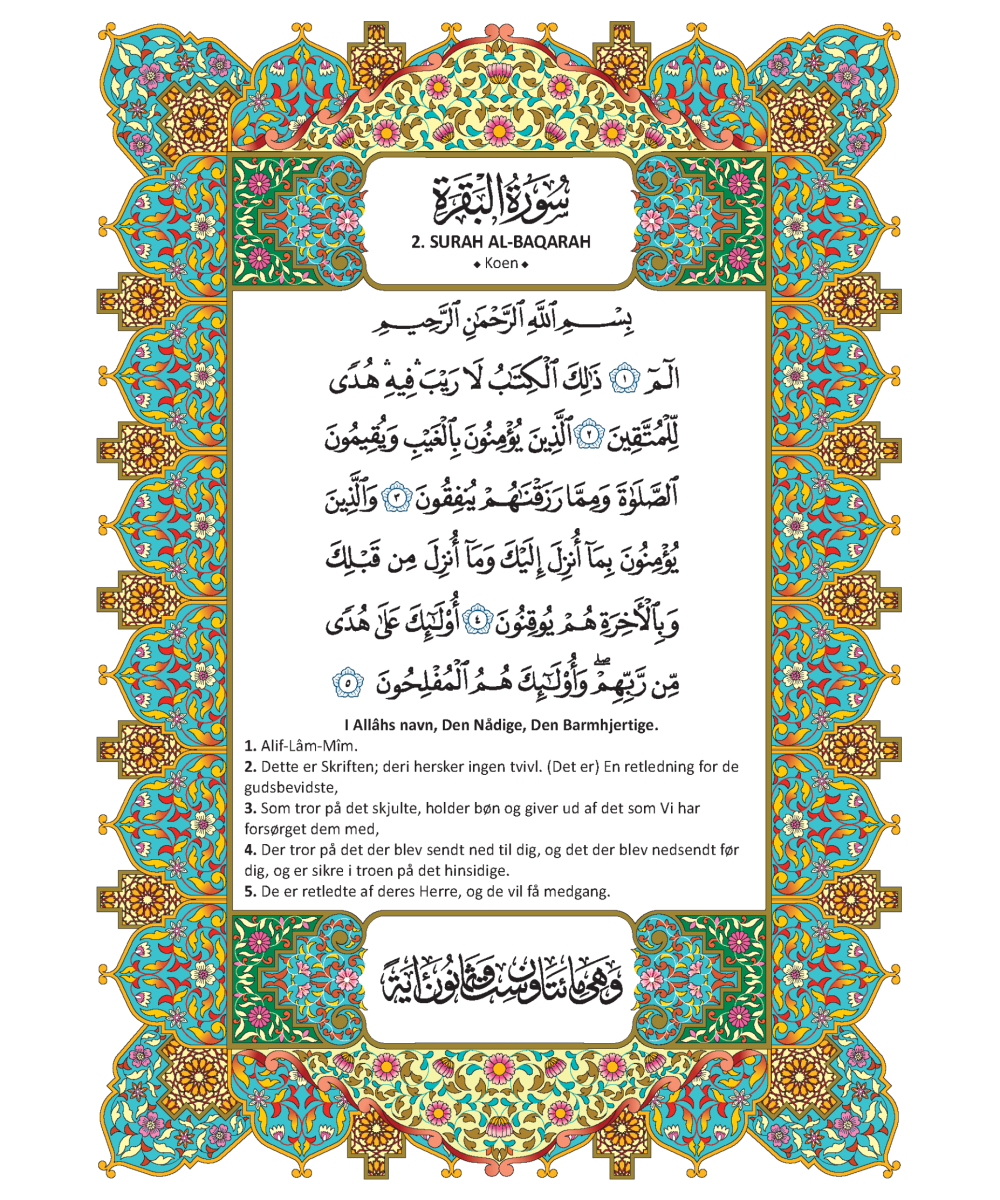 سُورَةُ الْبَقَرَةِ
2. SURAH AL-BAQARAH
◆ Koen ◆
بِسْمِ ٱللَّهِ ٱلرَّحْمَٰنِ ٱلرَّحِيمِ
الٓمٓ ١ ذَٰلِكَ ٱلْكِتَٰبُ لَا رَيْبَ ۛ فِيهِ ۛ هُدًى
لِّلْمُتَّقِينَ ٢ ٱلَّذِينَ يُؤْمِنُونَ بِٱلْغَيْبِ وَيُقِيمُونَ
ٱلصَّلَوٰةَ وَمِمَّا رَزَقْنَٰهُمْ يُنفِقُونَ ٣ وَٱلَّذِينَ
يُؤْمِنُونَ بِمَآ أُنزِلَ إِلَيْكَ وَمَآ أُنزِلَ مِن قَبْلِكَ
وَبِٱلْأَخِرَةِ هُمْ يُوقِنُونَ ٤ أُو۟لَٰٓئِكَ عَلَىٰ هُدًى
مِّن رَّبِّهِمْ ۖ وَأُو۟لَٰٓئِكَ هُمُ ٱلْمُفْلِحُونَ ٥
I Allâhs navn, Den Nådige, Den Barmhjertige.
1. Alif-Lâm-Mîm.
2. Dette er Skriften; deri hersker ingen tvivl. (Det er) En retledning for de
gudsbevidste,
3. Som tror på det skjulte, holder bøn og giver ud af det som Vi har
forsørget dem med,
4. Der tror på det der blev sendt ned til dig, og det der blev nedsendt før
dig, og er sikre i troen på det hinsidige.
5. De er retledte af deres Herre, og de vil få medgang.
وَهِيَ مِائَتَانِ وَسِتٌّ وَثَمَانُونَ اٰيَةً